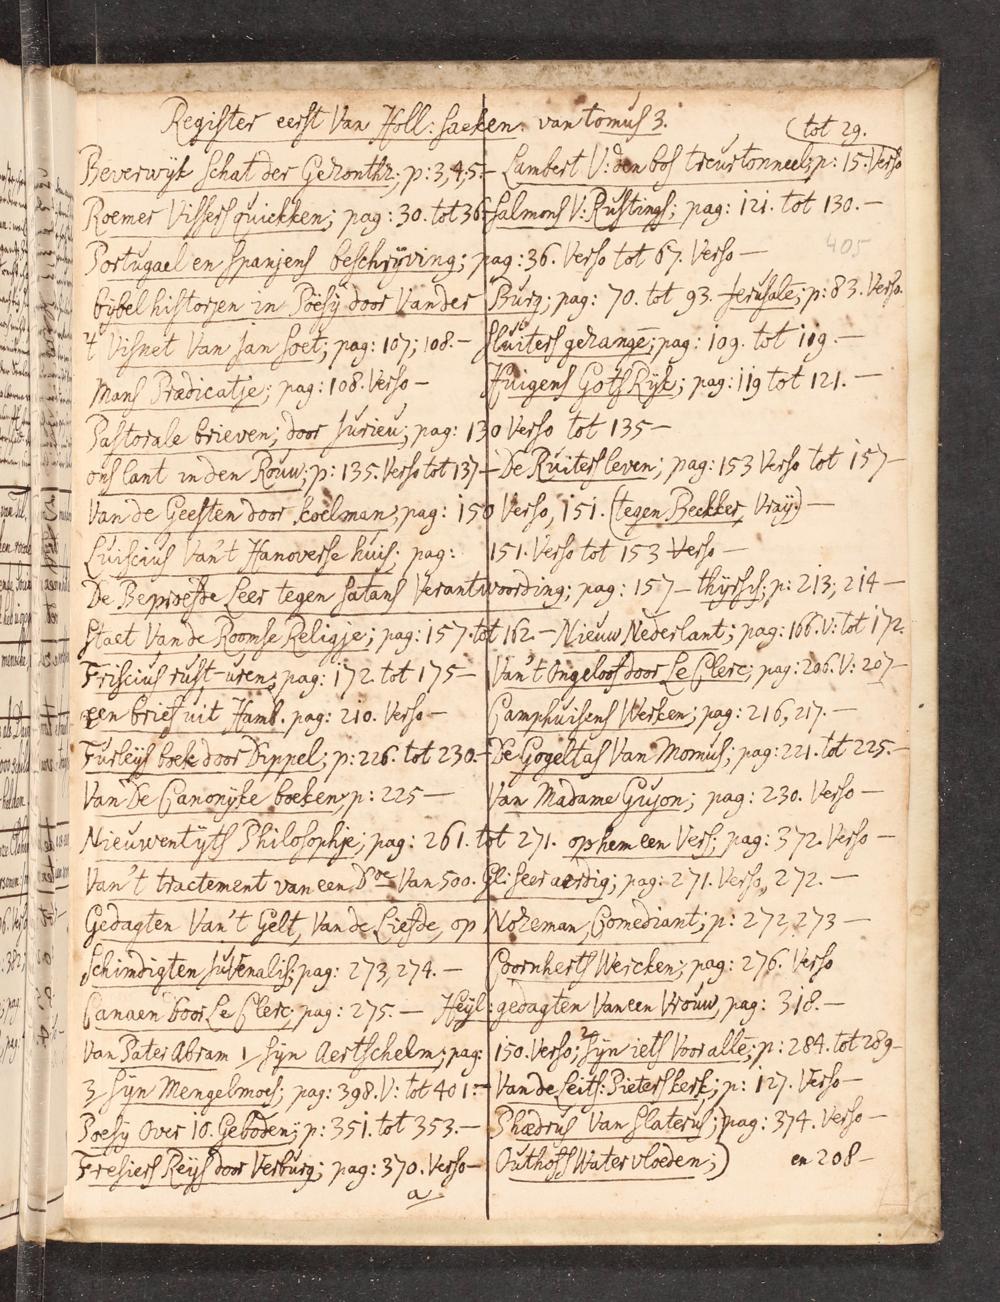 Register eerst Van Holl: saeken. van tomus 3.
(tot 29.
Beverwijk schat der Gezonthz; p: 3,4,5- Lambert V: den bos treurtonneel; p: 15. Verso
Roemer Vissers quickken; pag: 30. tot 36- Salmons V: Rustings; pag: 121. tot 130. —
405
Portugael en spanjens beschrijving; pag: 36. Verso tot 67. Verso —
bijbel historien in Poësy door Vander Burg; pag: 70. tot 93. Jerusale; p: 83. Verso.
't Visnet Van Jan soet; pag: 107; 108. — sluiters gezange; pag: 109. tot 119. —
Mans Prædicatje; pag: 108. Verso — Huigens Gots Rijk; pag: 119 tot 121. —
Pastorale brieven; door Jurieu; pag: 130 Verso tot 135 —
ons lant in den Rouw; p: 135. Verso tot 137 — De Ruiters leven; pag: 153 Verso tot 157 —
Van de Geesten door koelman; pag: 150 Verso, 151. (tegen Bekker, Vraij) —
Luiscius Van't Hanoverse huis; pag: 151. Verso tot 153 Verso —
De Beproefde Leer tegen satans Verantwoording; pag: 157 — thyrsis; p: 213; 214 —
staet Van de Roomse Religje; pag: 157. tot 162. — Nieuw Nederlant; pag: 166. V: tot 172.
Friscius rust-uren; pag: 172. tot 175 — Van't Ongeloof door Le Clerc; pag: 206. V: 207 —
een brief uit Hamb. pag: 210. Verso — Camphuisens Werken; pag: 216, 217. —
Furleijs boek door Dippel; p: 226. tot 230. — De Gogeltas Van Momus; pag: 221. tot 225. —
Van De Canonijke boeken; p: 225 — Van Madame Gujon; pag: 230. Verso —
Nieuwentijts Philosophie; pag: 261. tot 271. op hem een Vers; pag: 372. Verso —
Van't tractement van een Dor Van 500. Gl: seer aerdig; pag: 271. Verso, 272. —
Gedagten Van't Gelt, Van de Liefde, op Nozeman, Comediant; p: 272, 273 —
schimdigten Juvenalis; pag: 273, 274. — Coornherts Wercken; pag: 276. Verso
Canaen door Le Clerc; pag: 275. — Heyl: gedagten Van een Vrouw, pag: 318. —
Van Pater Abram 1 sijn Aertschelm; pag: 150. Verso; 2 sijn iets Voor alle; p: 284. tot 289 —
3 sijn Mengelmoes; pag: 398. V: tot 401: — Van de Leits: Pieterskerk; p: 127. Verso —
Poesy Over 10. Geboden; p: 351. tot 353. — Phædrus Van slaterus; pag: 374. Verso —
Fresiers Reijs door Verburg; pag: 370. Verso — Outhofs Watervloeden;) en 208 —
a